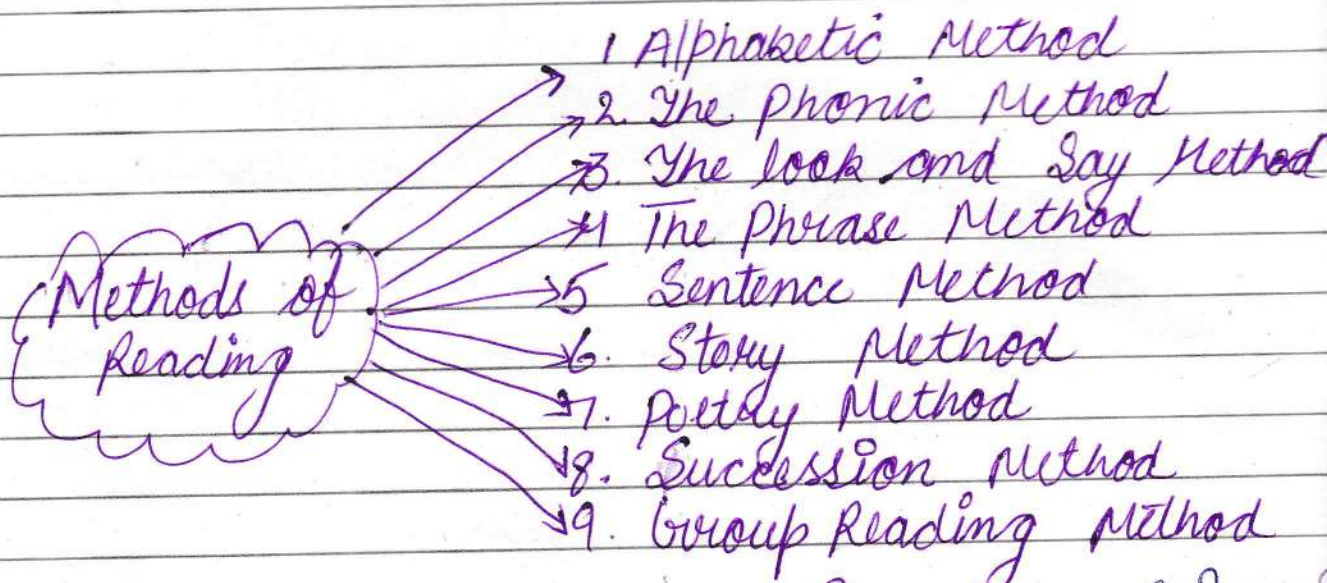 Methods of
Reading
1 Alphabetic Method
2. The Phonic Method
3. The look and Say Method
4 The Phrase Method
5 Sentence Method
6. Story Method
7. Poetry Method
8. Succession Method
9. Group Reading Method